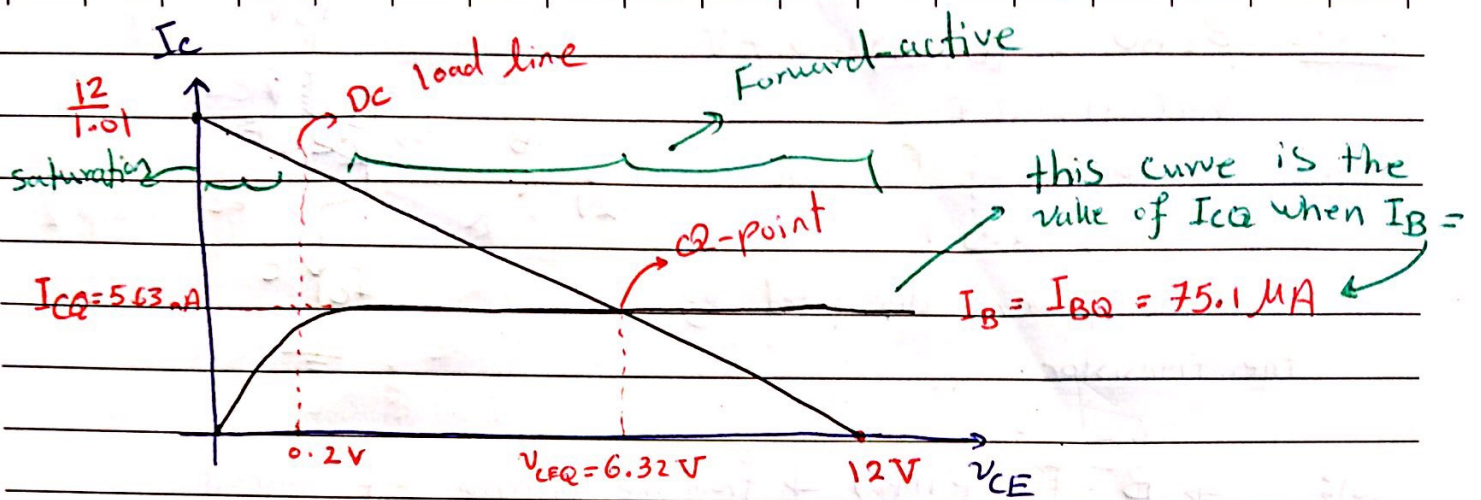 Ic
12
1.01
DC load line
Forward-active
saturation
this curve is the
value of ICQ when IB =
Q-point
ICQ = 5.63 mA
IB = IBQ = 75.1 µA
0.2V
VCEQ = 6.32 V
12 V
VCE